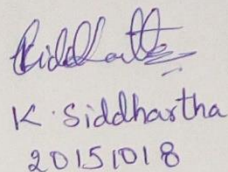 Siddhartha
K. Siddhartha
20151018